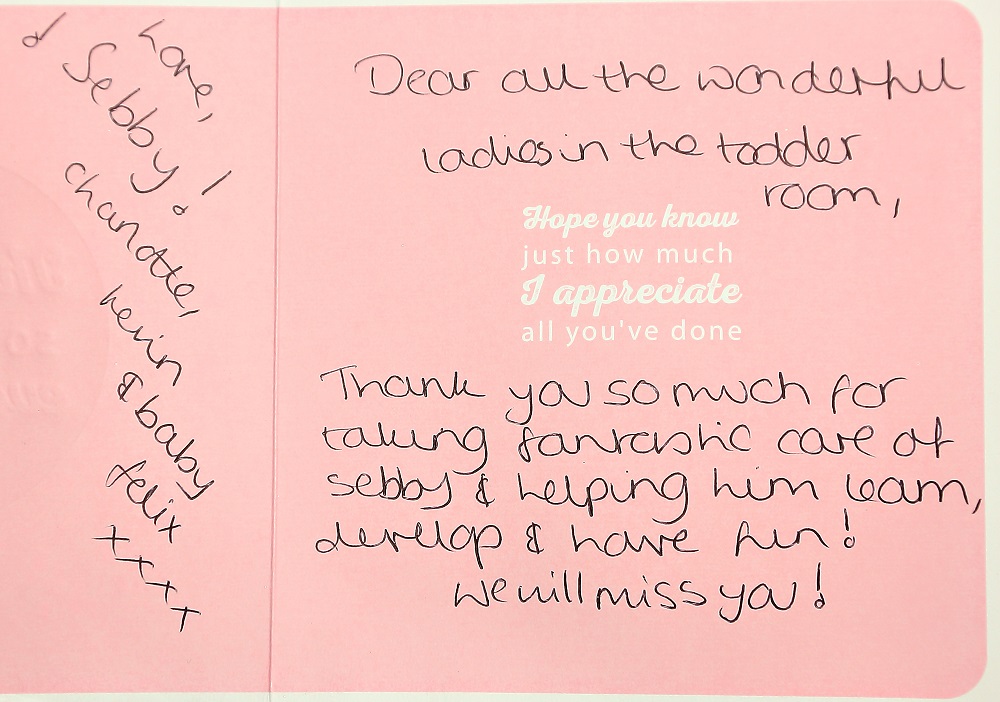 Dear all the wonderful
ladies in the toddler
room,
Hope you know
just how much
I appreciate
all you've done
Thank you so much for
taking fantastic care of
sebby & helping him learn,
develop & have fun!
We will miss you!
Love,
! Sebby!
charlotte,
kevin
& baby
felix
xxxx